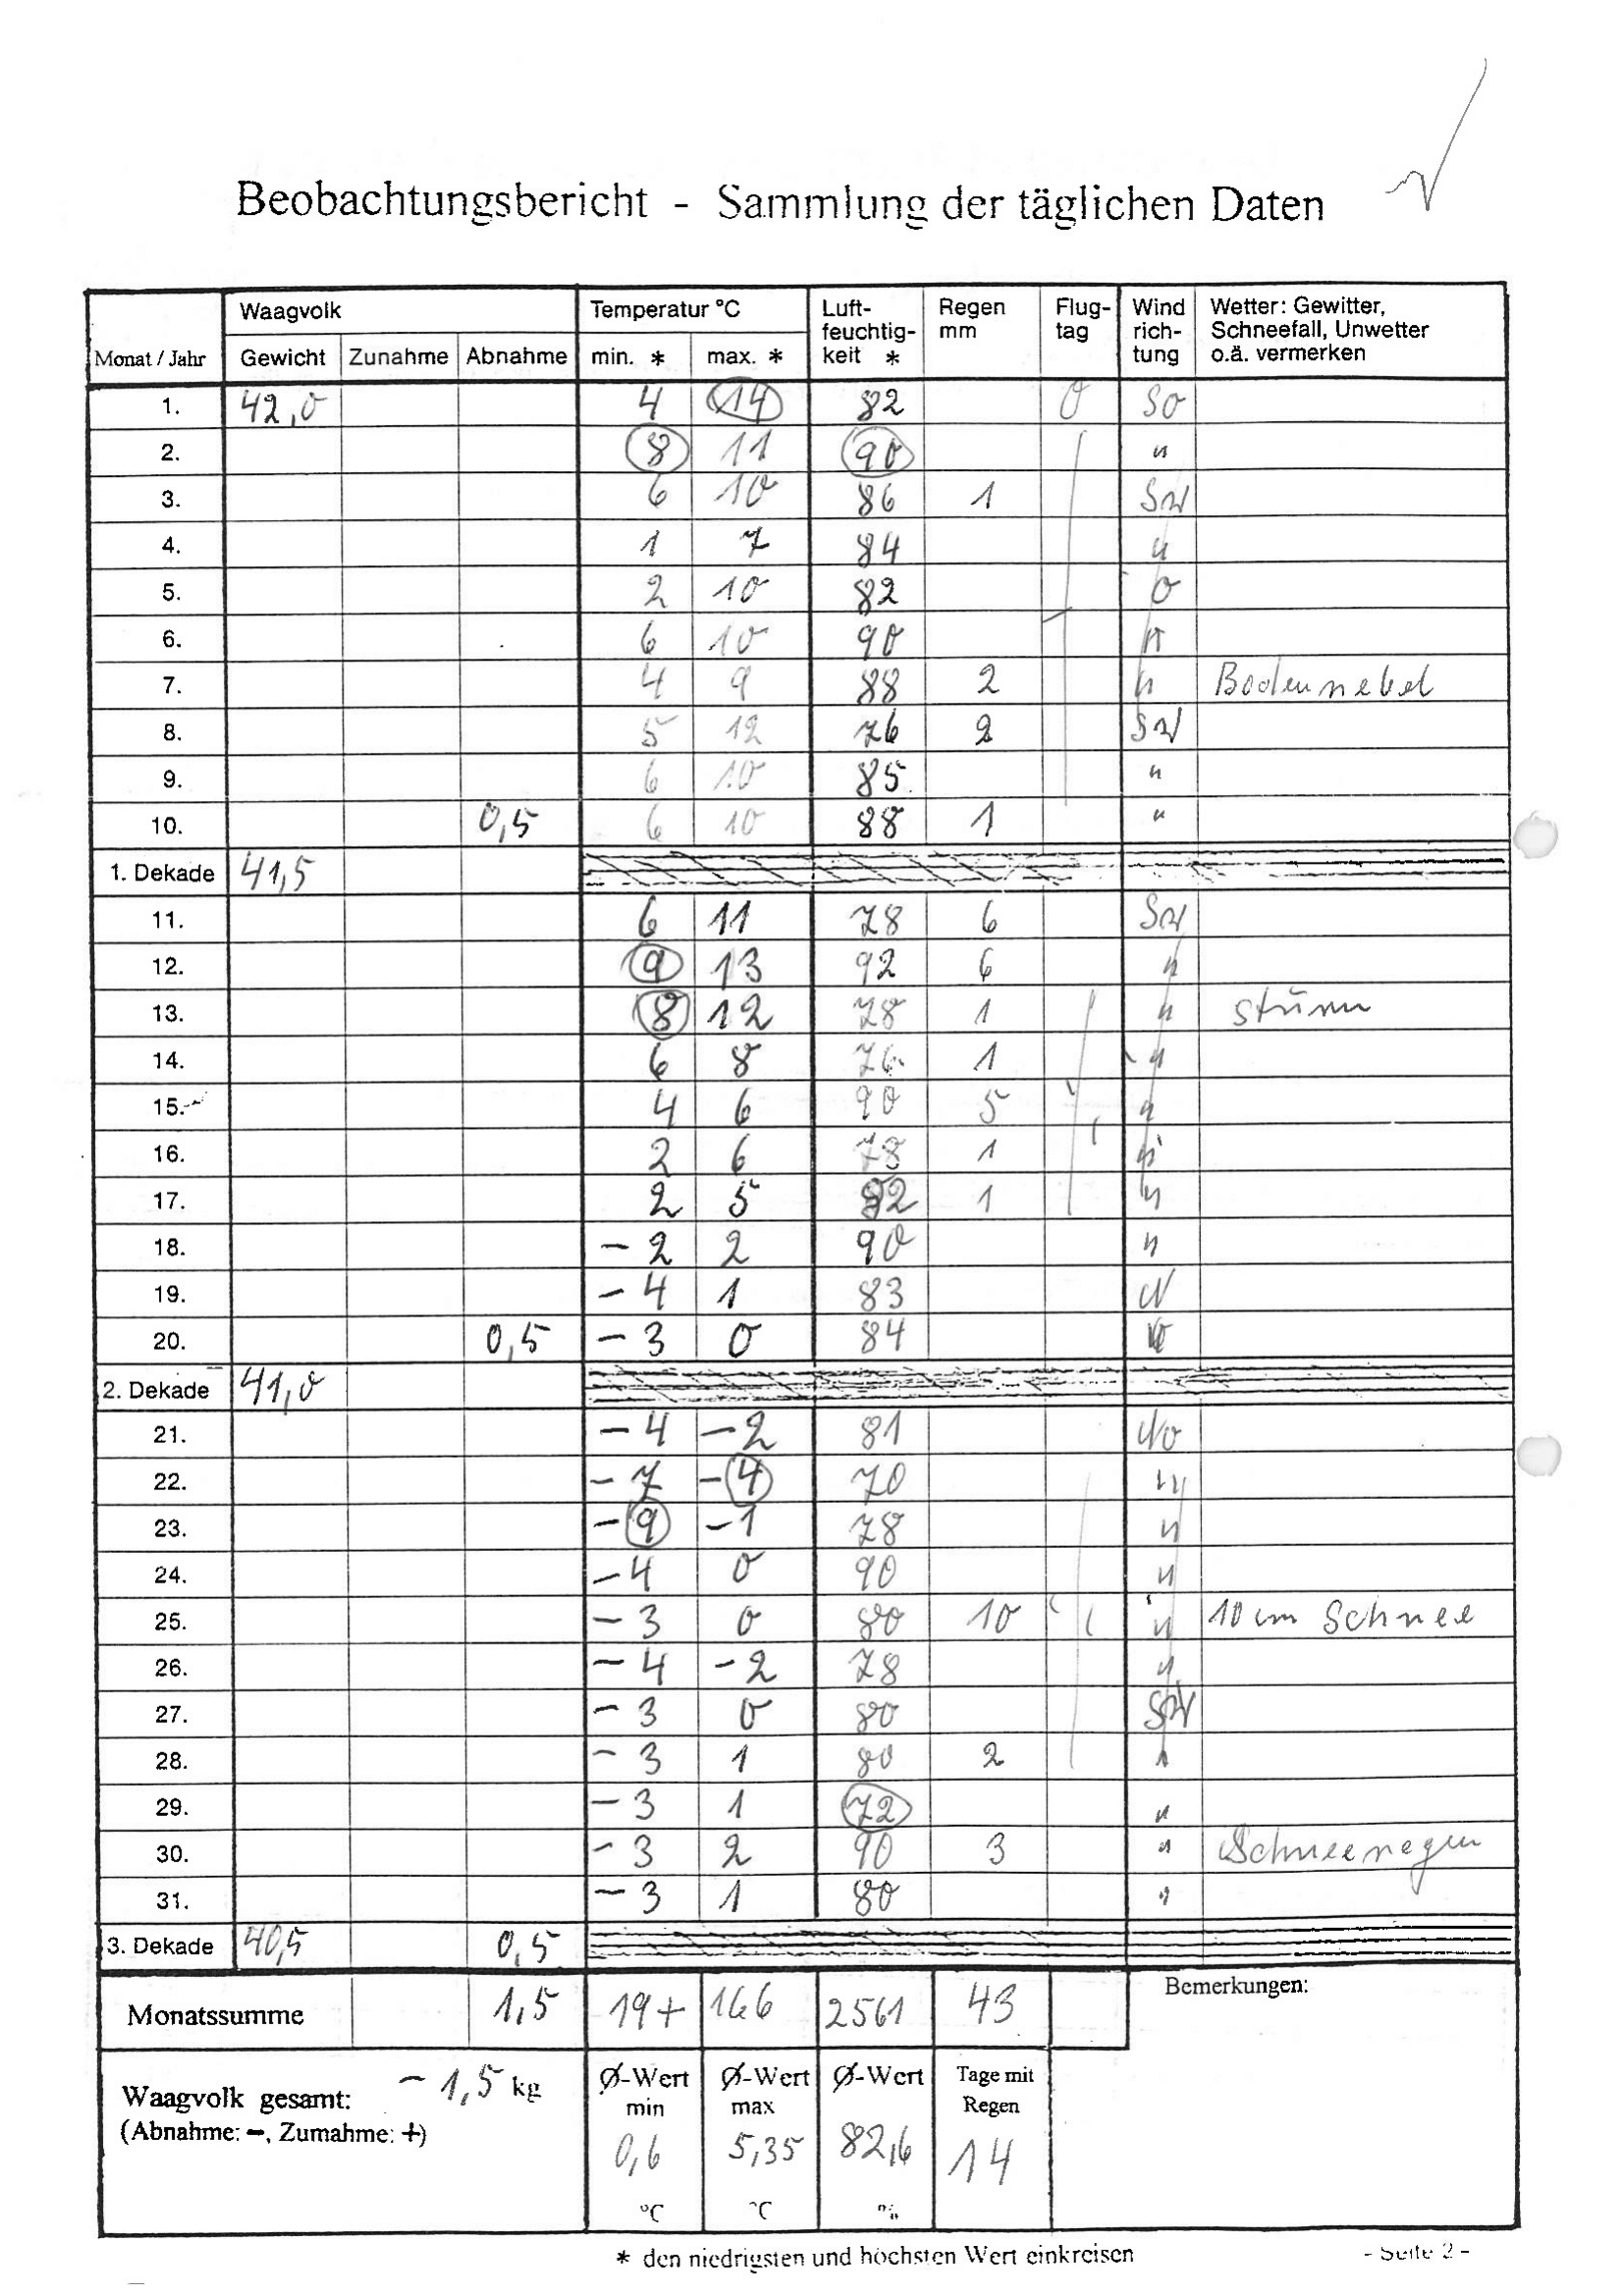 Beobachtungsbericht - Sammlung der täglichen Daten
Monat / Jahr Waagvolk Temperatur °C Luft-feuchtig-keit * Regen mm Flug-tag Wind rich-tung Wetter: Gewitter, Schneefall, Unwetter o.ä. vermerken
Gewicht Zunahme Abnahme min. * max. *
1. 42,0 4 14 82 0 SO
2. 8 11 90 "
3. 6 10 86 1 SW
4. 1 7 84 "
5. 2 10 82 O
6. 6 10 90 "
7. 4 9 88 2 " Bodennebel
8. 5 12 76 2 SW
9. 6 10 85 "
10. 0,5 6 10 88 1 "
1. Dekade 41,5
11. 6 11 78 6 SW
12. 9 13 92 6 "
13. 8 12 78 1 " Sturm
14. 6 8 76 1 "
15. 4 6 90 5 "
16. 2 6 78 1 "
17. 2 5 82 1 "
18. -2 2 90 "
19. -4 1 83 N
20. 0,5 -3 0 84
2. Dekade 41,0
21. -4 -2 81 NO
22. -7 -4 70 "
23. -9 -1 78 "
24. -4 0 90 "
25. -3 0 80 10 " 10 cm Schnee
26. -4 -2 78 "
27. -3 0 80 SW
28. -3 1 80 2 "
29. -3 1 72 "
30. -3 2 90 3 " Schneeregen
31. -3 1 80 "
3. Dekade 40,5 0,5
Monatssumme 1,5 19+ 166 2561 43 Bemerkungen:
Waagvolk gesamt: -1,5 kg
(Abnahme: -, Zumahme: +)
Ø-Wert min 0,6 °C
Ø-Wert max 5,35 °C
Ø-Wert 82,6 %
Tage mit Regen 14
* den niedrigsten und höchsten Wert einkreisen
- Seite 2 -